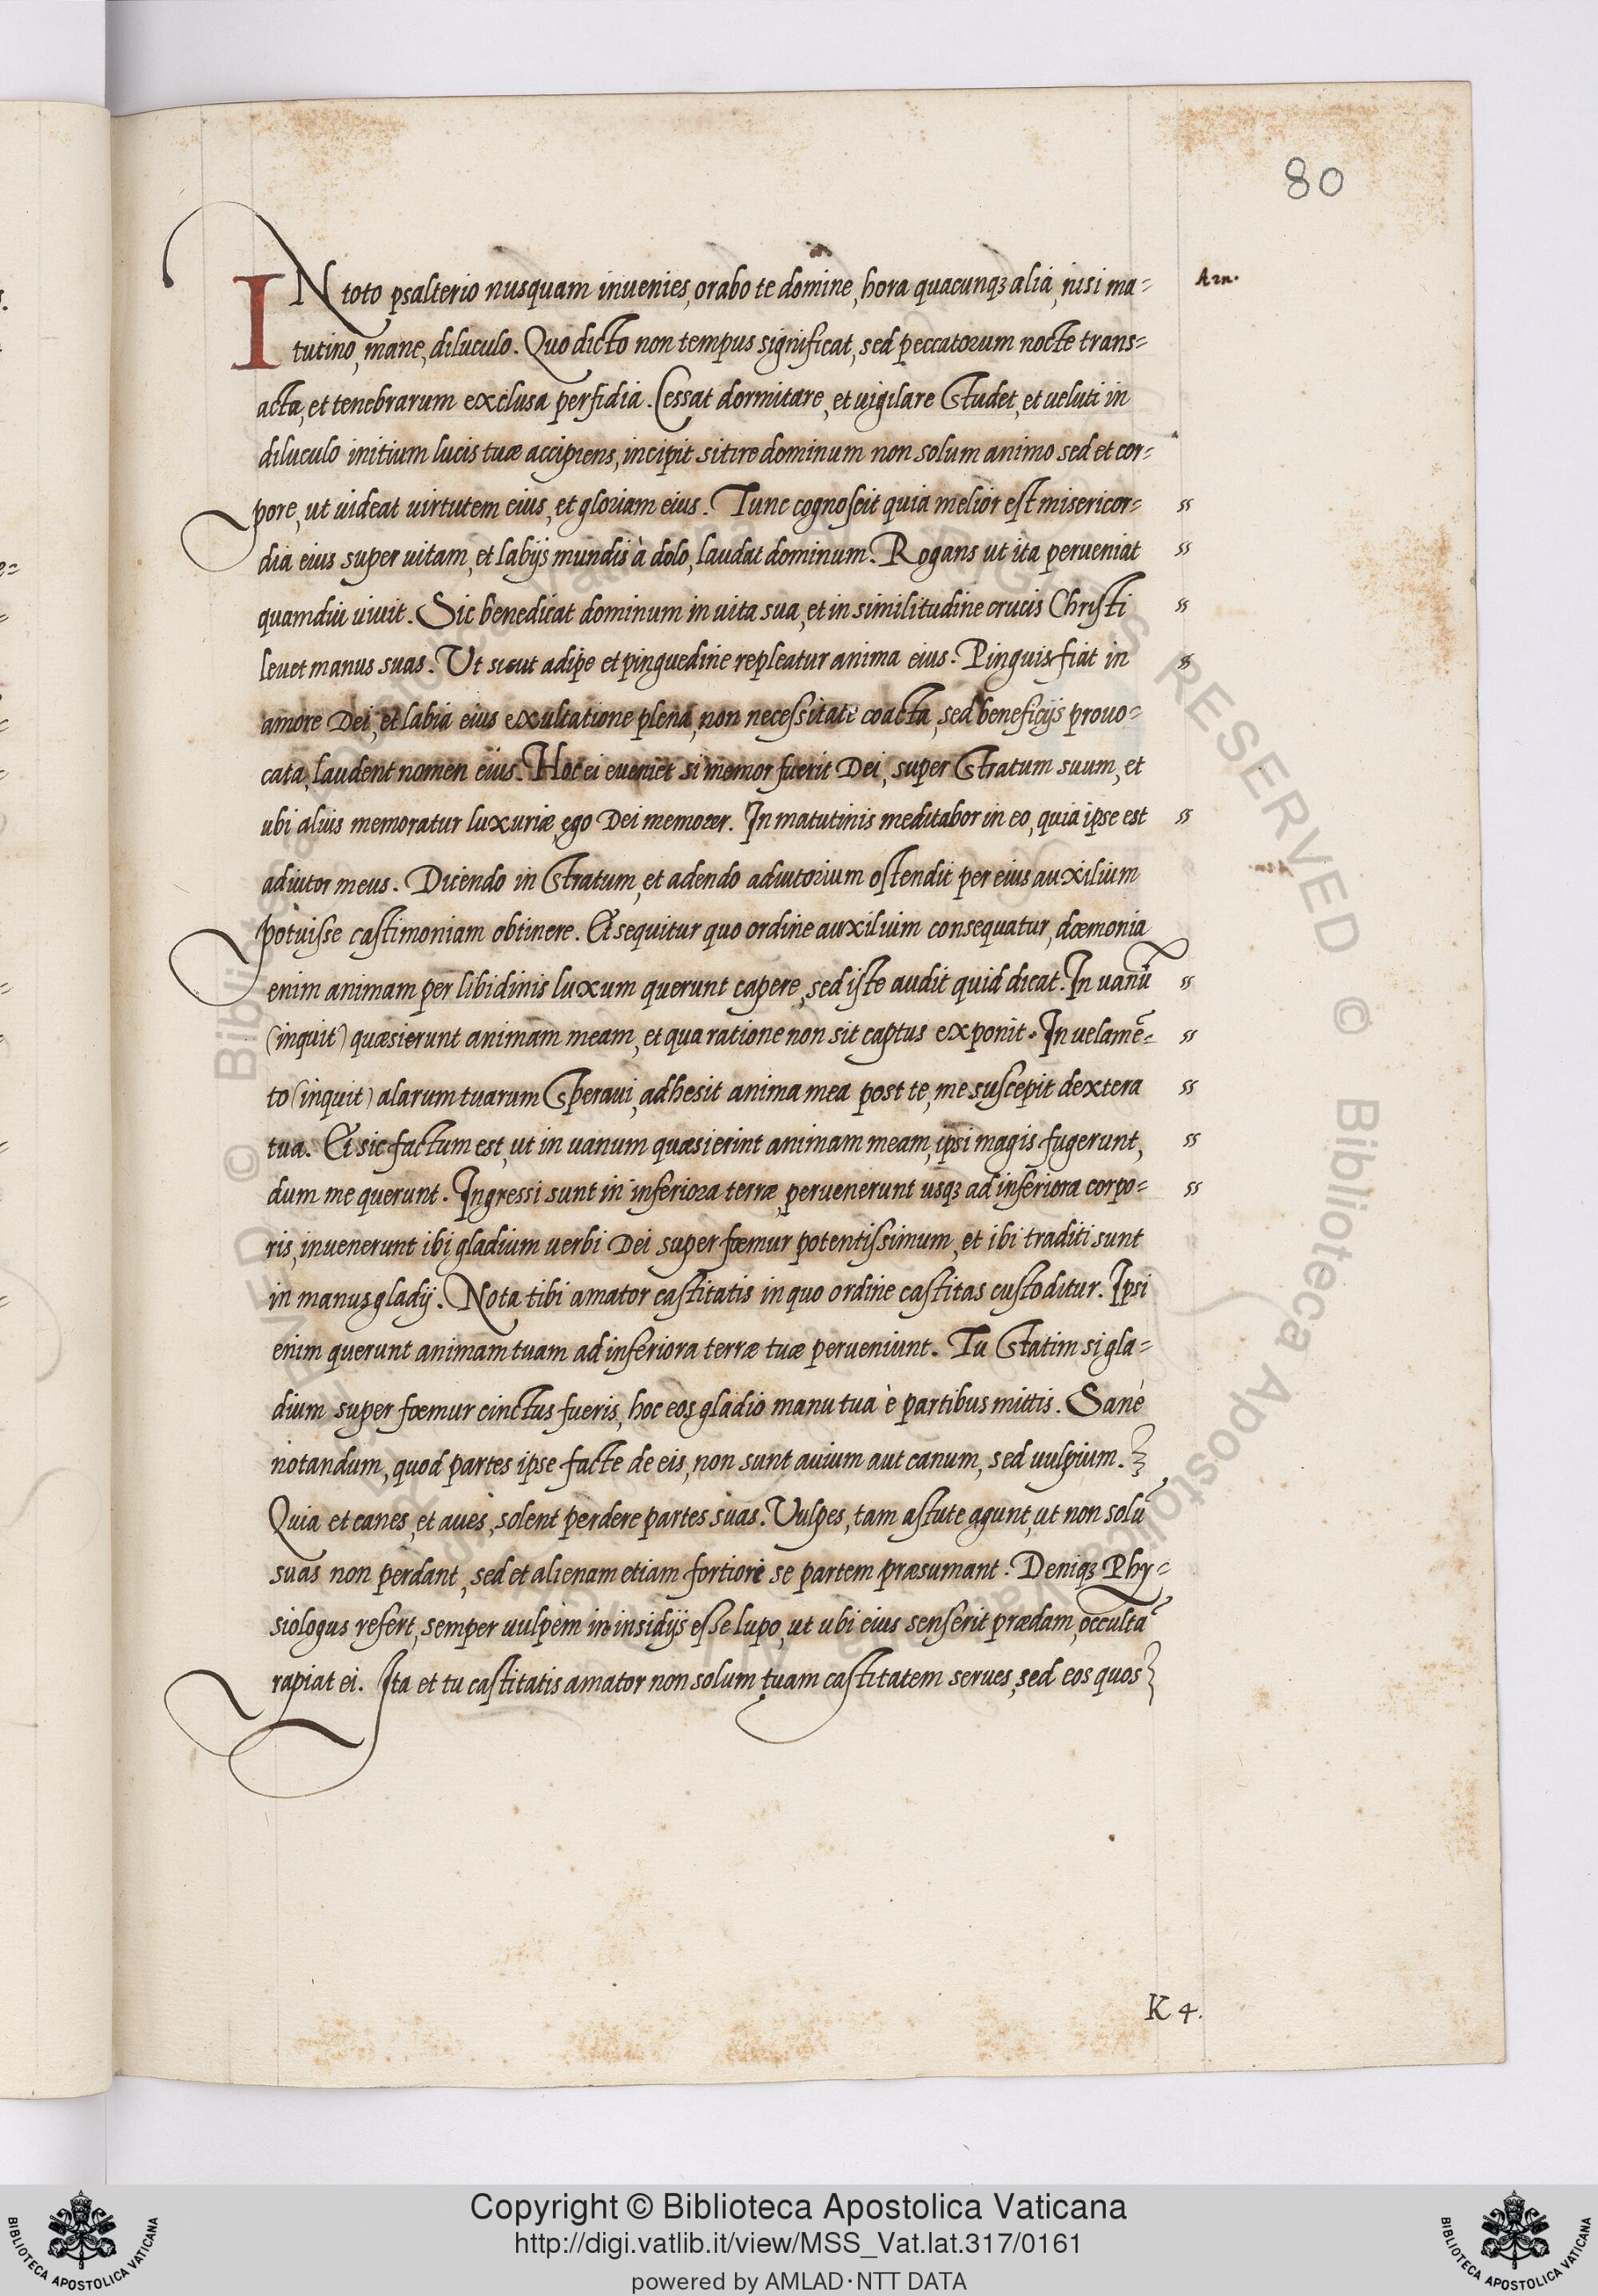 80
IN toto psalterio nusquam inuenies, orabo te domine, hora quacunqȝ alia, nisi ma= Arn.
tutino, mane, diluculo. Quo dicto non tempus significat, sed peccatorum nocte trans=
acta, et tenebrarum exclusa perfidia. Cessat dormitare, et uigilare studet, et ueluti in
diluculo initium lucis tuæ accipiens, incipit sitire dominum non solum animo sed et cor=
pore, ut uideat virtutem eius, et gloriam eius. Tunc cognoscit quia melior est misericor= ss
dia eius super uitam, et labijs mundis à dolo, laudat dominum. Rogans ut ita perueniat ss
quamdiu uiuit. Sic benedicat dominum in uita sua, et in similitudine crucis Christi ss
leuet manus suas. Ut sicut adipe et pinguedine repleatur anima eius. Pinguis fiat in s
amore Dei, et labia eius exultatione plena, non necessitate coacta, sed beneficijs prouo=
cata, laudent nomen eius. Hoc ei eueniet si memor fuerit Dei, super stratum suum, et
ubi alius memoratur luxuriæ, ego Dei memorer. In matutinis meditabor in eo, quia ipse est ss
adiutor meus. Dicendo in stratum, et adendo adiutorium ostendit per eius auxilium
potuisse castimoniam obtinere. Et sequitur quo ordine auxilium consequatur, dæmonia
enim animam per libidinis luxum querunt capere, sed iste audit quid dicat. In uanū ss
(inquit) quæsierunt animam meam, et qua ratione non sit captus exponit. In velamē= ss
to (inquit) alarum tuarum speraui, adhesit anima mea post te, me suscepit dextera ss
tua. Et sic factum est, ut in uanum quæsierint animam meam, ipsi magis fugerunt, ss
dum me querunt. Ingressi sunt in inferiora terræ, peruenerunt usqȝ ad inferiora corpo= ss
ris, inuenerunt ibi gladium uerbi Dei super fœmur potentissimum, et ibi traditi sunt
in manus gladij. Nota tibi amator castitatis in quo ordine castitas custoditur. Ipsi
enim querunt animam tuam ad inferiora terræ tuæ perueniunt. Tu statim si gla=
dium super fœmur cinctus fueris, hoc eos gladio manu tua è partibus mittis. Sanè
notandum, quod partes ipse facte de eis, non sunt auium aut canum, sed uulpium.
Quia et canes, et aues, solent perdere partes suas. Vulpes, tam astute agunt, ut non solū
suas non perdant, sed et alienam etiam fortiore se partem præsumant. Deniqȝ Phy=
siologus refert, semper uulpem in insidijs esse lupo, ut ubi eius senserit prædam, occultā
rapiat ei. Ita et tu castitatis amator non solum tuam castitatem serues, sed eos quos
K 4.
© Biblioteca Apostolica Vaticana
RESERVED © Biblioteca Apostolica Vaticana
Copyright © Biblioteca Apostolica Vaticana
http://digi.vatlib.it/view/MSS_Vat.lat.317/0161
powered by AMLAD·NTT DATA
BIBLIOTECA APOSTOLICA VATICANA
BIBLIOTECA APOSTOLICA VATICANA